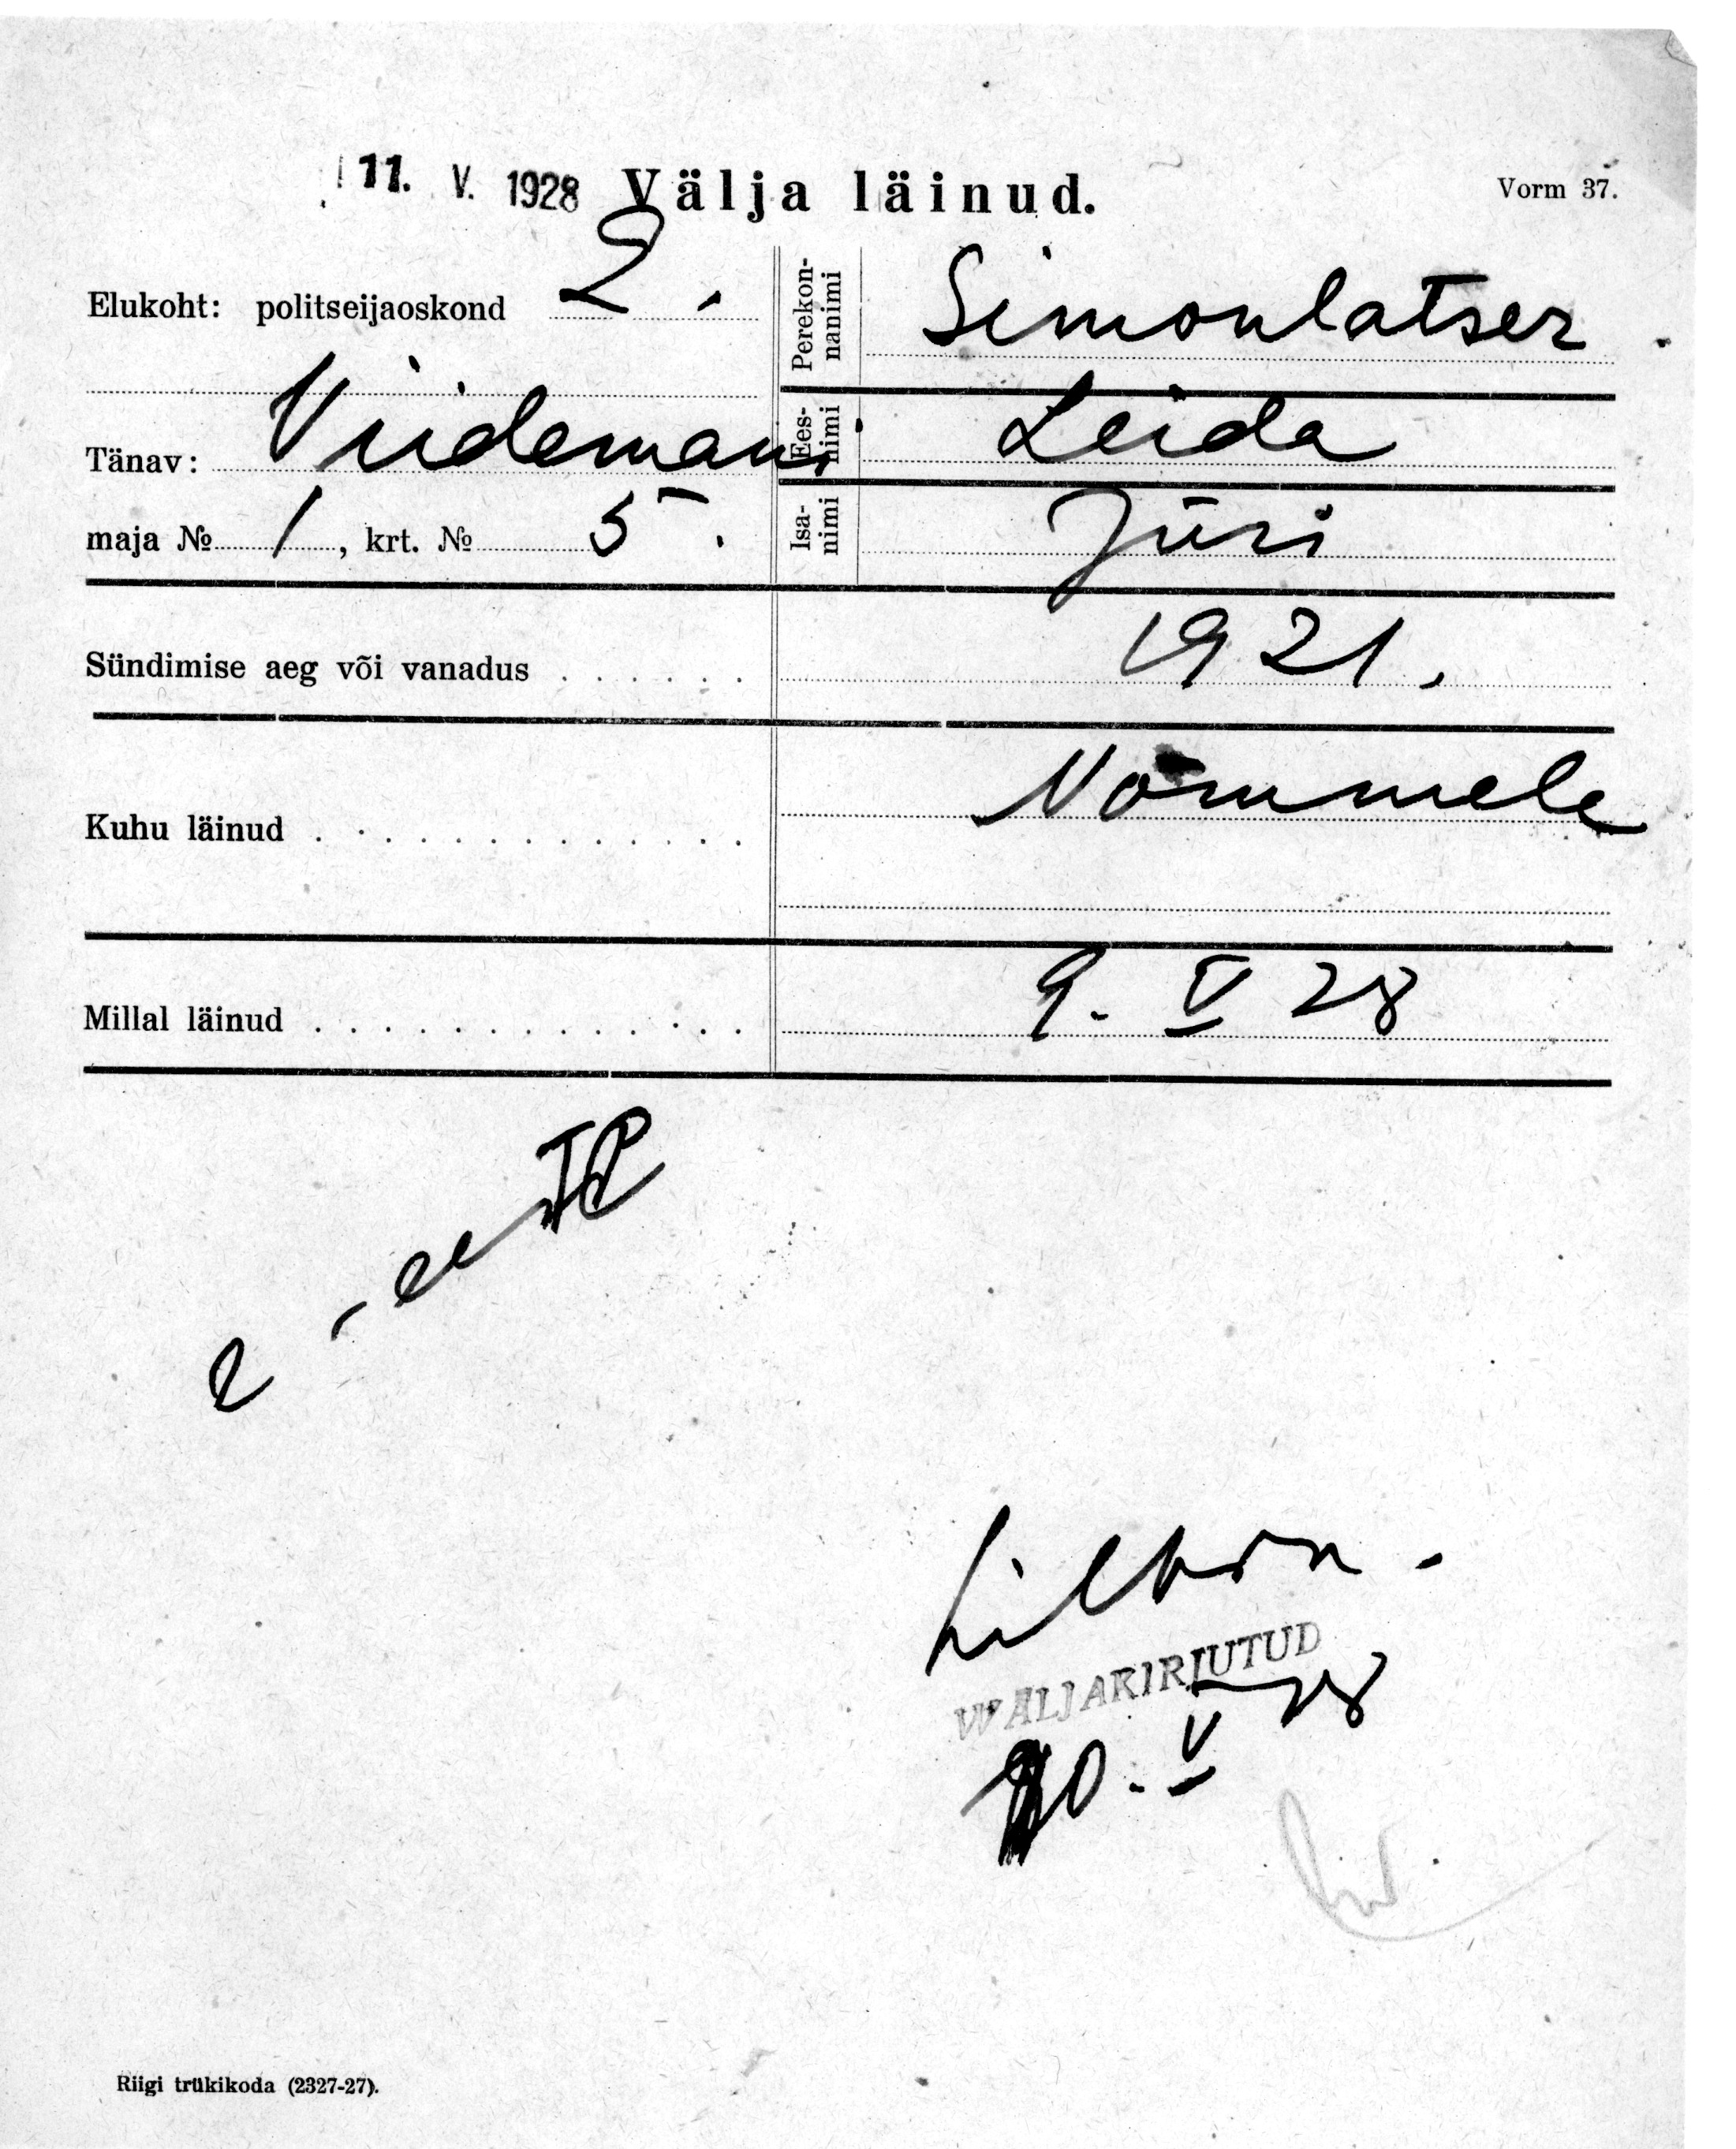 11. V. 1928 Välja läinud.
Vorm 37.
Elukoht: politseijaoskond 2.
Tänav: Viidemanni
maja № 1, krt. № 5.
Perekon-
nanimi
Simonlatser.
Ees-
nimi
Leida
Isa-
nimi
Jüri
Sündimise aeg või vanadus . . . . . . 1921.
Kuhu läinud . . . . . . . . . . . . . Nõmmele
Millal läinud . . . . . . . . . . . . . 9. V 28
WÄLJAKIRJUTUD
10. V 28
Riigi trükikoda (2327-27).